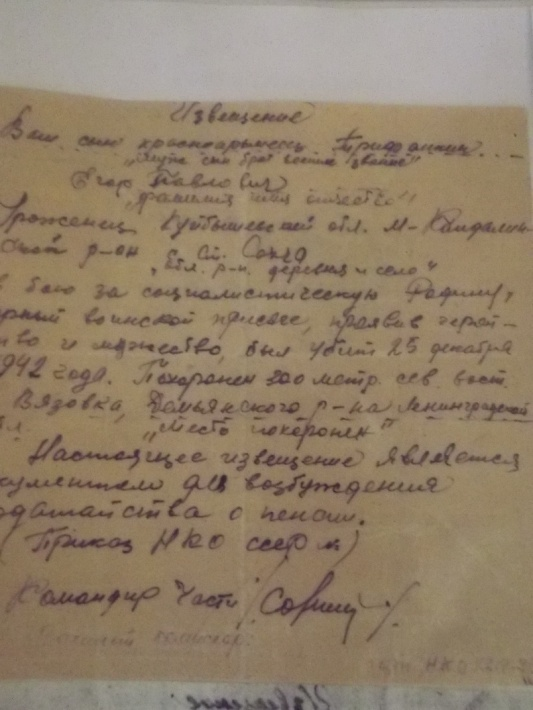 Извещение
Ваш сын красноармеец Трифанкин
„Муж сын брат воинск звание"
Егор Павлович
„фамилия имя отчество"
Уроженец Куйбышевской обл. М-
р-он С.
„обл. р-н. деревня и село"
в бою за социалистическую Родину,
ерный воинской присяге, проявив герой-
тво и мужество, был убит 25 декабря
1942 года. Похоронен 200 метр сев. вост.
Вязовка, Демьянского р-на Ленинградской
„Место похоронен"
Настоящее извещение является
кументом для возбуждения
одатайства о пенсии.
(Приказ НКО СССР №)
Командир Части